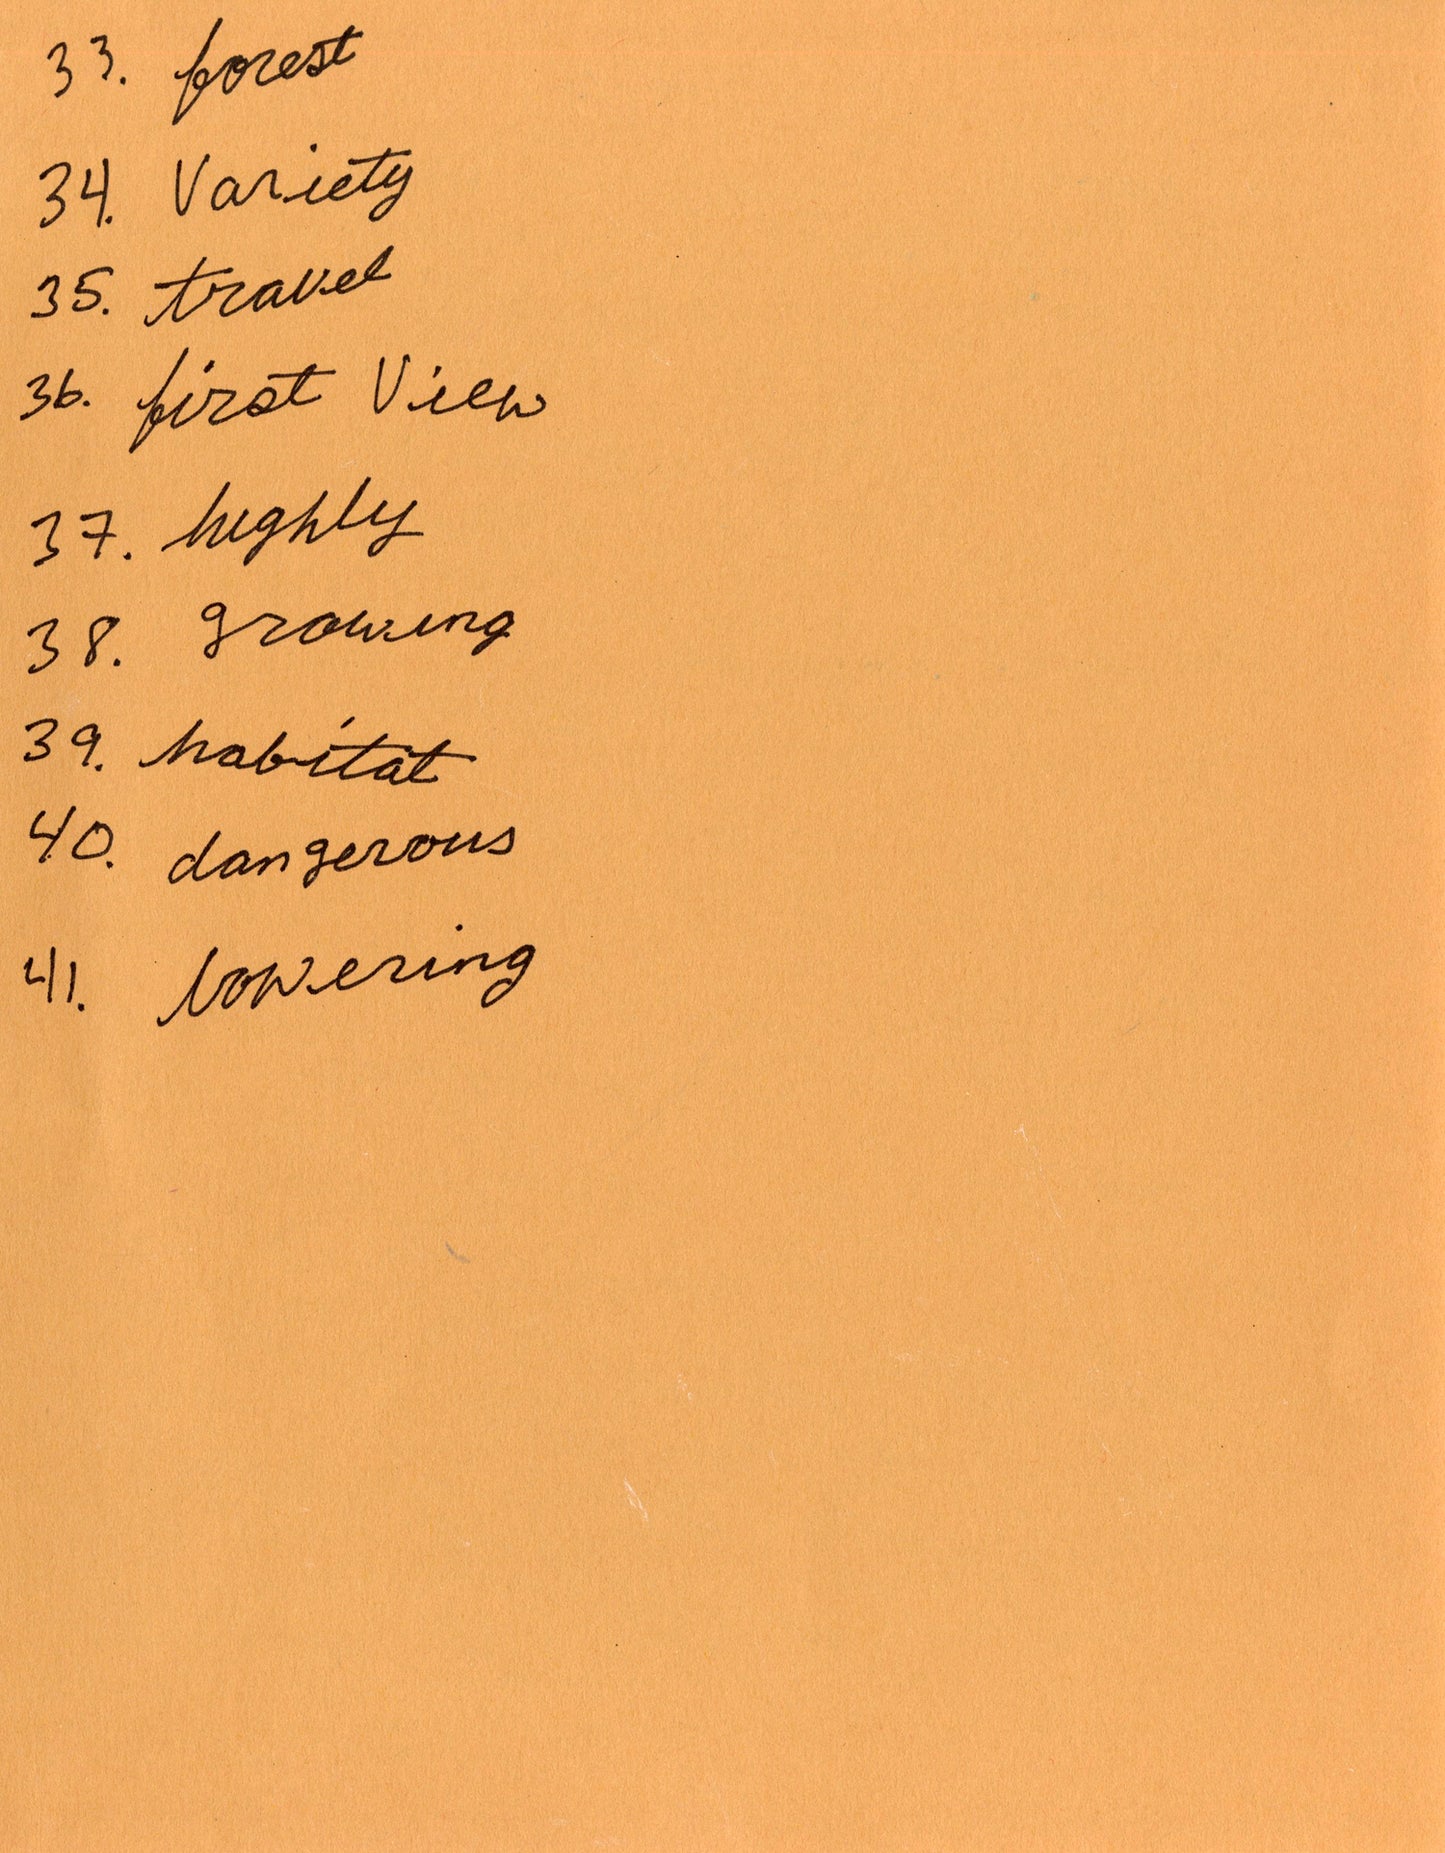 33. forest
34. Variety
35. travel
36. first View
37. highly
38. growing
39. habitat
40. dangerous
41. lowering